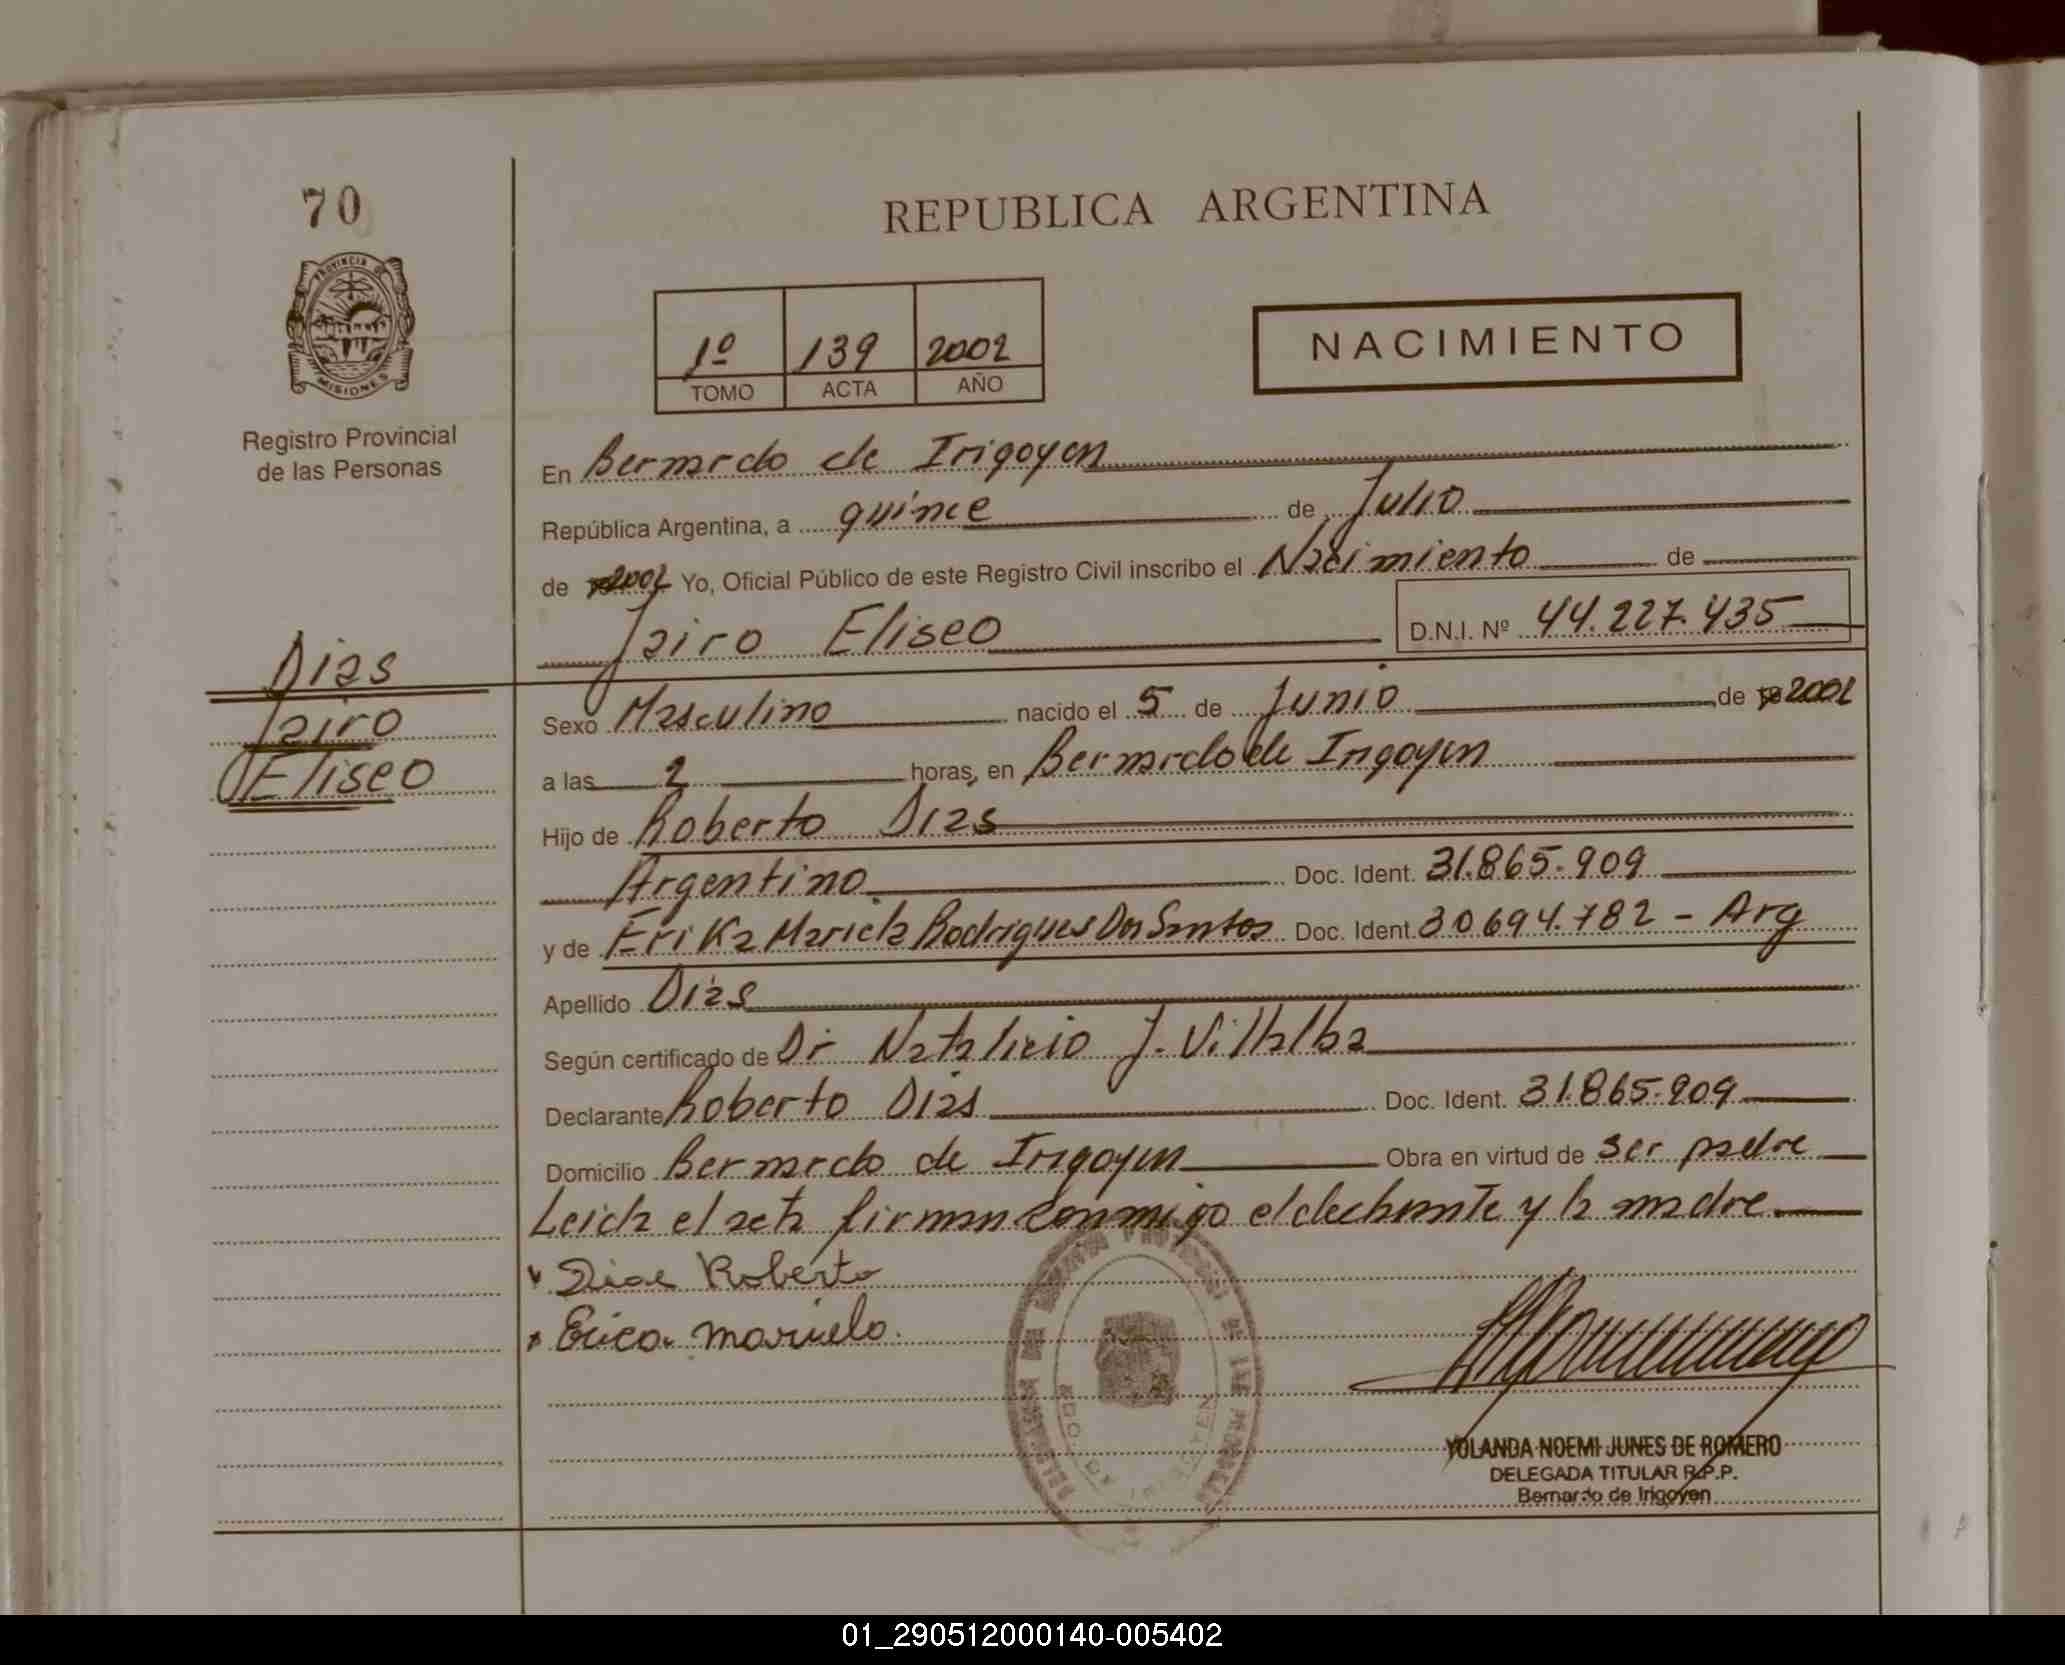 70
REPUBLICA ARGENTINA
PROVINCIA DE
MISIONES
Registro Provincial
de las Personas
1º 139 2002
TOMO ACTA AÑO
NACIMIENTO
En Bernardo de Irigoyen
República Argentina, a quince de Julio
de 2002 Yo, Oficial Público de este Registro Civil inscribo el Nacimiento de
Jairo Eliseo D.N.I. Nº 44.227.435
Dias
Jairo
Eliseo
Sexo Masculino nacido el 5 de Junio de 2002
a las 2 horas, en Bernardo de Irigoyen
Hijo de Roberto Dias
Argentino Doc. Ident. 31.865.909
y de Erika Mariela Rodrigues Dos Santos Doc. Ident. 30694.782 - Arg
Apellido Dias
Según certificado de Dr Natalicio J. Villalba
Declarante Roberto Dias Doc. Ident. 31.865.909
Domicilio Bernardo de Irigoyen Obra en virtud de ser padre
Leida el acta firman conmigo el declarante y la madre.
Roberto
Erica mariela.
YOLANDA NOEMI JUNES DE ROMERO
DELEGADA TITULAR R.P.P.
Bernardo de Irigoyen
01_290512000140-005402